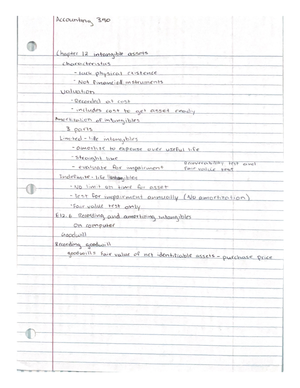 Accounting 350
Chapter 12 intangible assets
characteristics
- lack physical existence
- Not financial instruments
valuation
- Recorded at cost
- includes cost to get asset ready
Amortization of intangibles
Limited-life intangibles
- amortize to expense over useful life
- straight line
- evaluate for impairment
Recoverability test and
fair value test
Indefinite-life intangibles
- No limit on time for asset
- test for impairment annually (No amortization)
- fair value test only
E12.6 Recording and amortizing intangibles
on computer
Goodwill
Recording goodwill
goodwill = fair value of net identifiable assets - purchase price